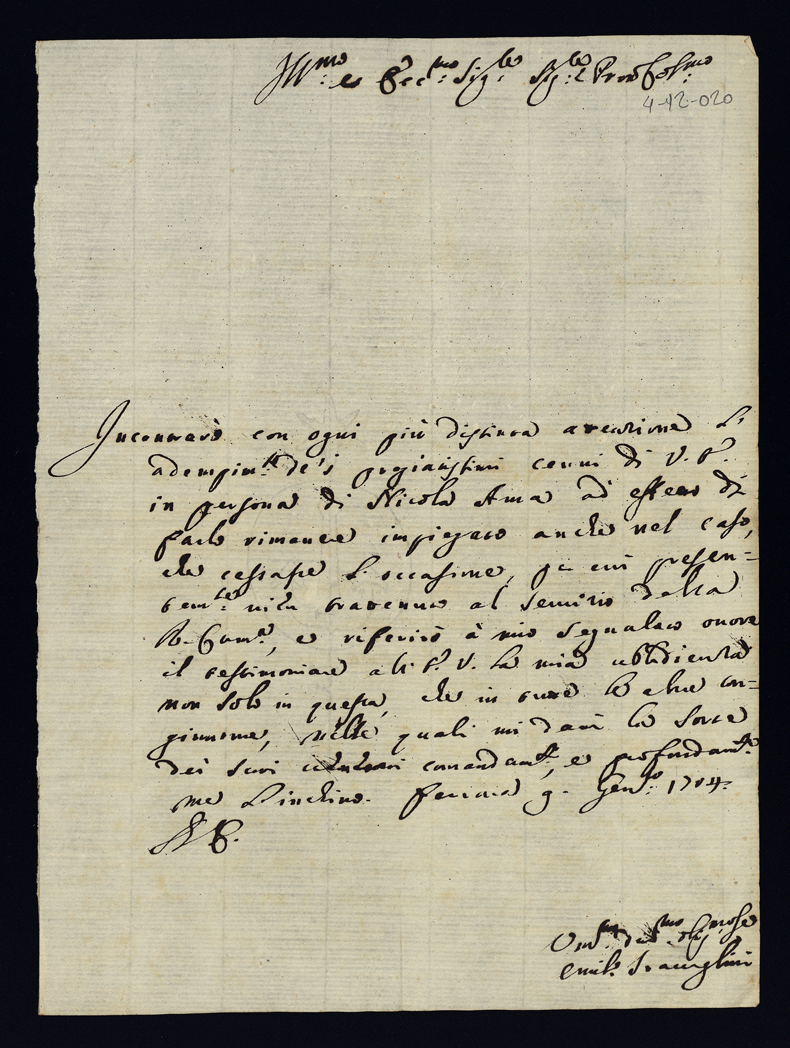 Ill.mo et Ecc.mo Sig.re Sig.re e Pron Col.mo
4-12-020
Incontrarò con ogni più distinta attentione l'
adempim.to de' i pregiatissimi cenni di V. E.
in persona di Nicola Ama ad effetto di
farlo rimanere impiegato anche nel caso,
che cessasse l'occasione, per cui presen=
tem.te si trattenne al servitio della
R. Cam.a, e riferirò à mio segnalato onore
il testimoniare all' E. V. la mia ubbidienza
non solo in questa, che in tutte le altre con=
giunture, nelle quali mi darà la sorte
dei suoi comandam.ti, e profondam.te
me l'inchino. Ferrara 9. Gen.o 1704.
V. E.
Um.mo Dev.mo
Emil.